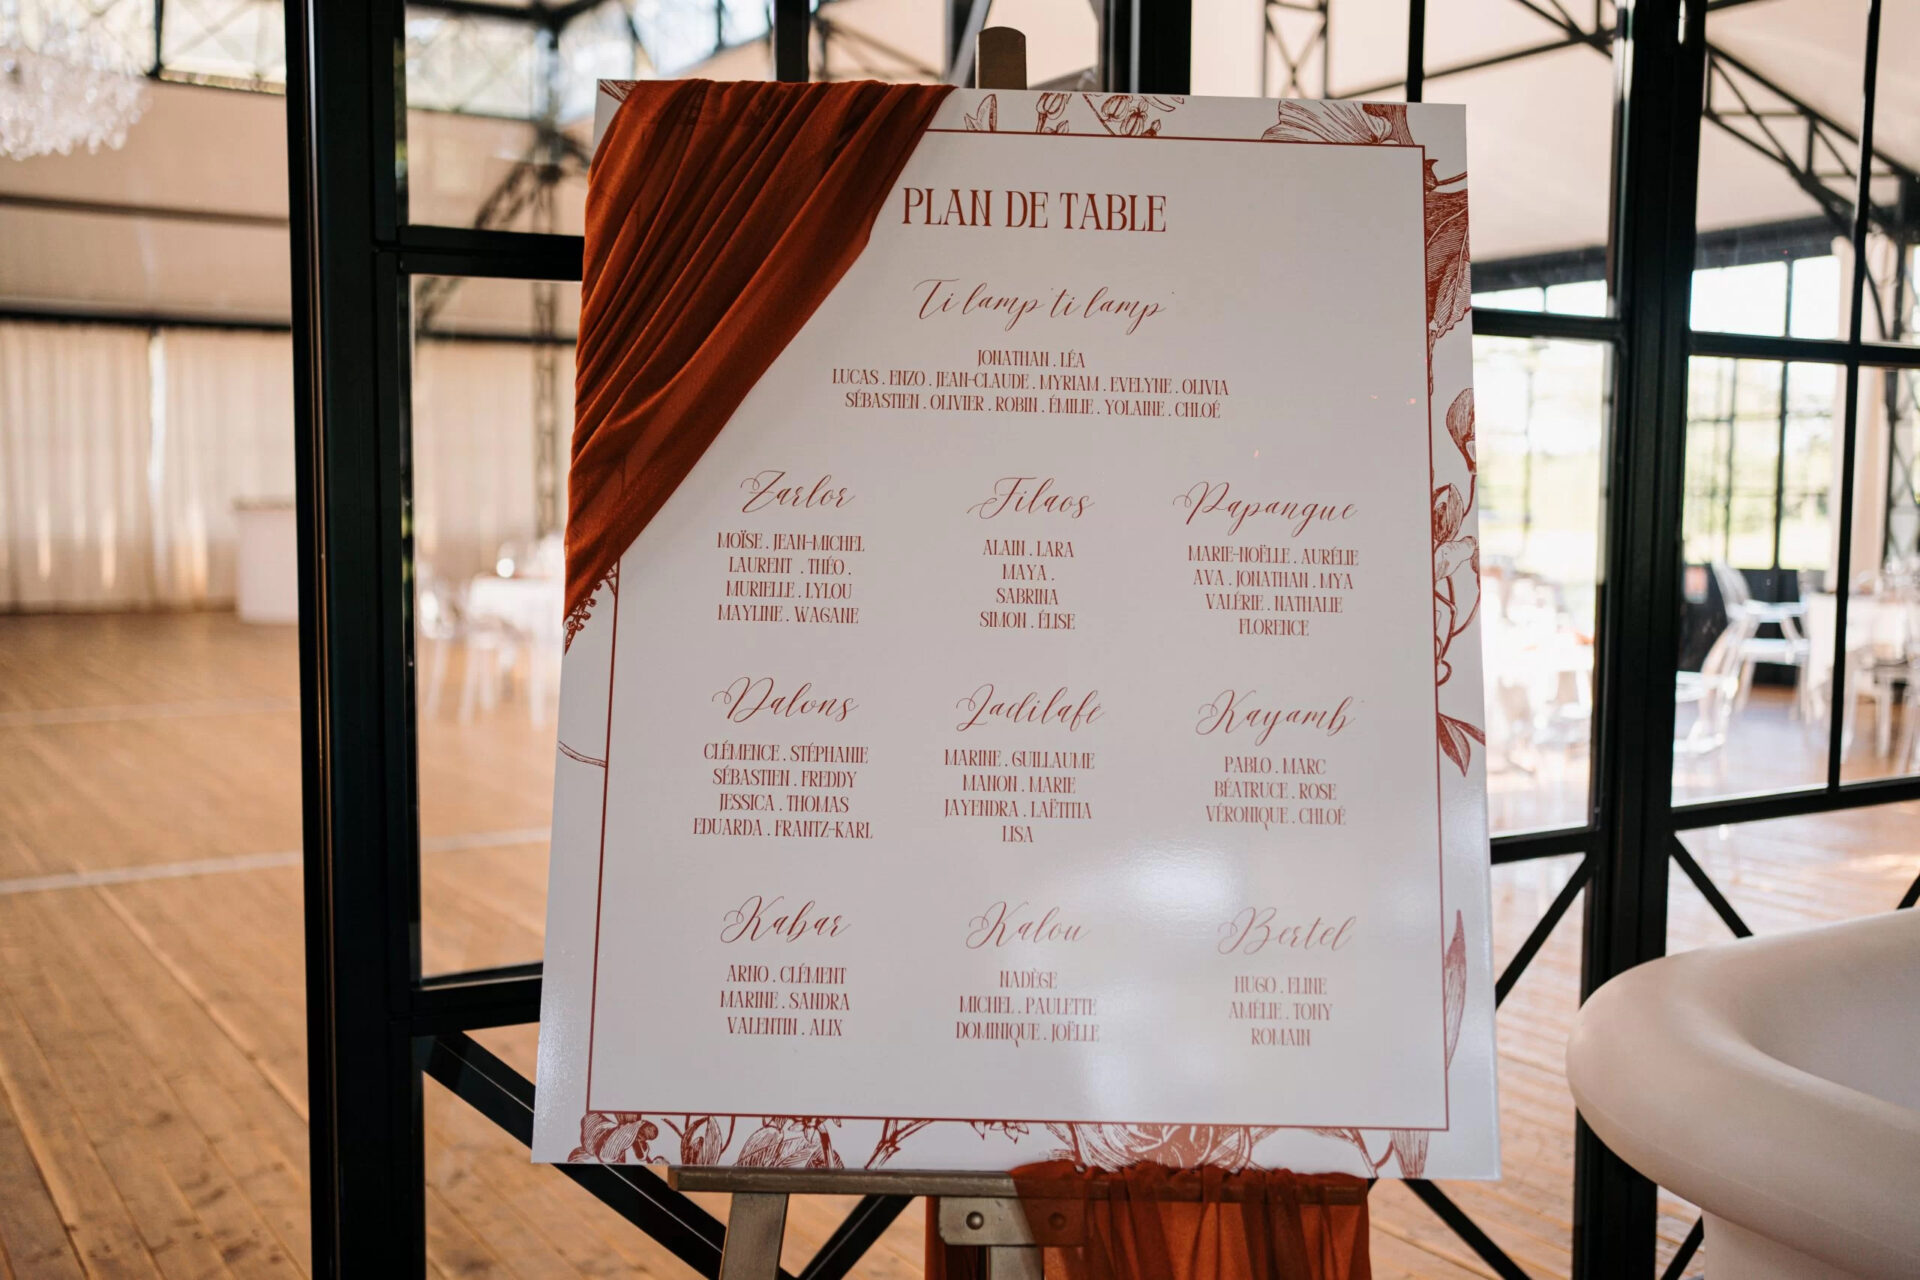 PLAN DE TABLE
Ti lamp' ti lamp'
JONATHAN . LÉA
LUCAS . ENZO . JEAN-CLAUDE . MYRIAM . EVELYNE . OLIVIA
SÉBASTIEN . OLIVIER . ROBIN . ÉMILIE . YOLAINE . CHLOÉ
Zarlor
MOÏSE . JEAN-MICHEL
LAURENT . THÉO .
MURIELLE . LYLOU
MAYLINE . WAGANE
Filaos
ALAIN . LARA
MAYA .
SABRINA
SIMON . ÉLISE
Papangue
MARIE-NOËLLE . AURÉLIE
AVA . JONATHAN . MYA
VALÉRIE . NATHALIE
FLORENCE
Dalons
CLÉMENCE . STÉPHANIE
SÉBASTIEN . FREDDY
JESSICA . THOMAS
EDUARDA . FRANTZ-KARL
Ladilafé
MARINE . GUILLAUME
MANON . MARIE
JAYENDRA . LAËTITIA
LISA
Kayamb
PABLO . MARC
BÉATRUCE . ROSE
VÉRONIQUE . CHLOÉ
Kabar
ARNO . CLÉMENT
MARINE . SANDRA
VALENTIN . ALIX
Kalou
NADÈGE
MICHEL . PAULETTE
DOMINIQUE . JOËLLE
Bertel
HUGO . ELINE
AMÉLIE . TONY
ROMAIN